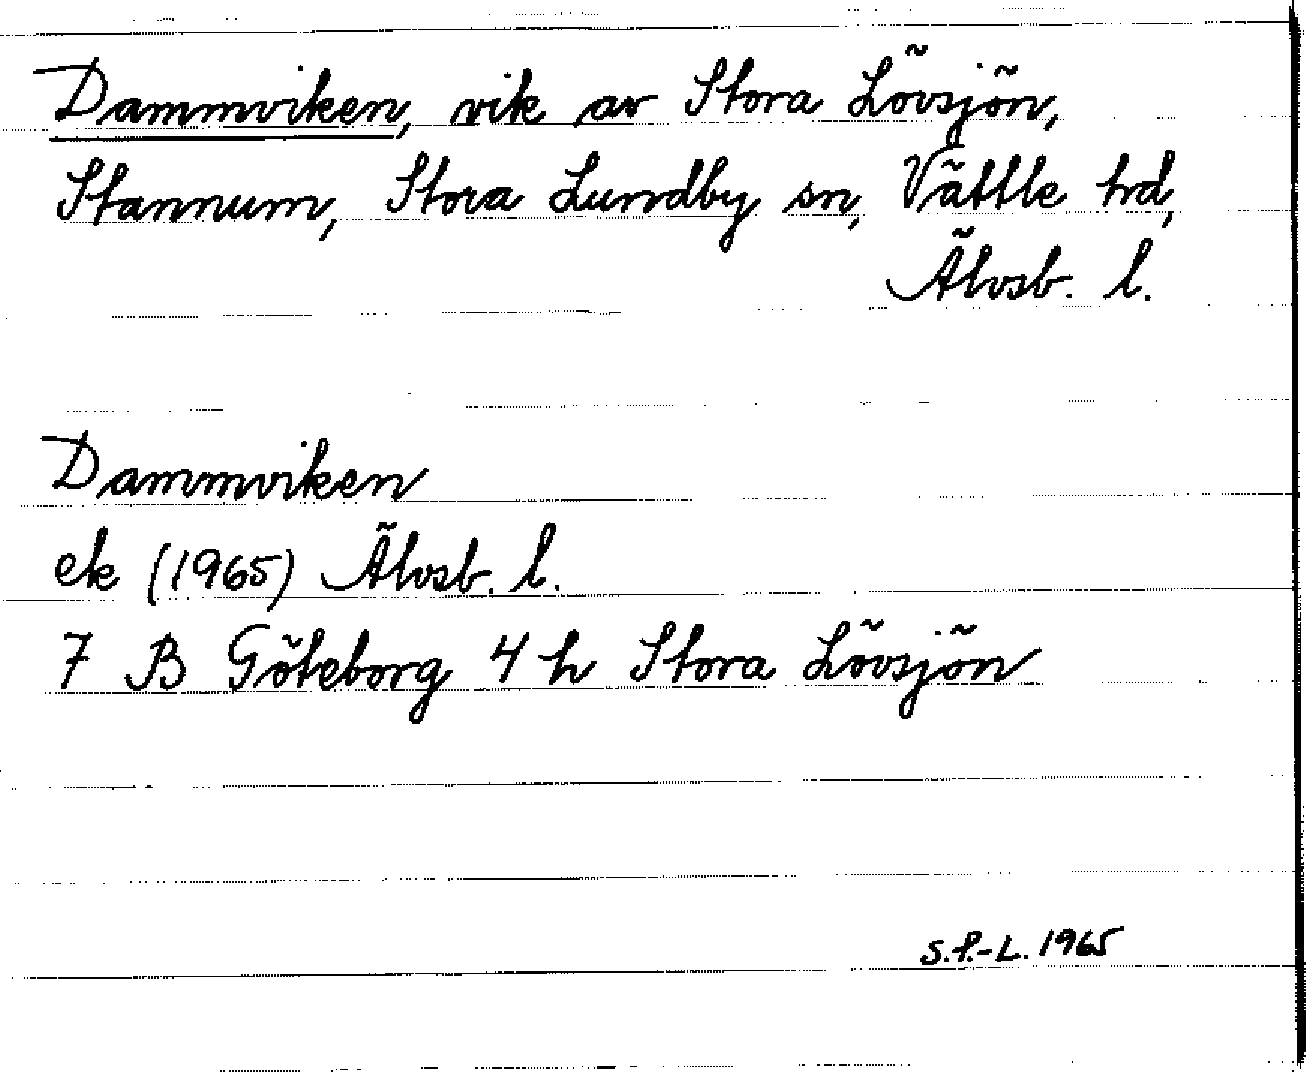 Dammviken, vik av Stora Lövsjön,
Stannum, Stora Lundby sn, Vättle hd,
Älvsb. l.
Dammviken
ek (1965) Älvsb. l.
7 B Göteborg 4 h Stora Lövsjön
S.P.-L. 1965